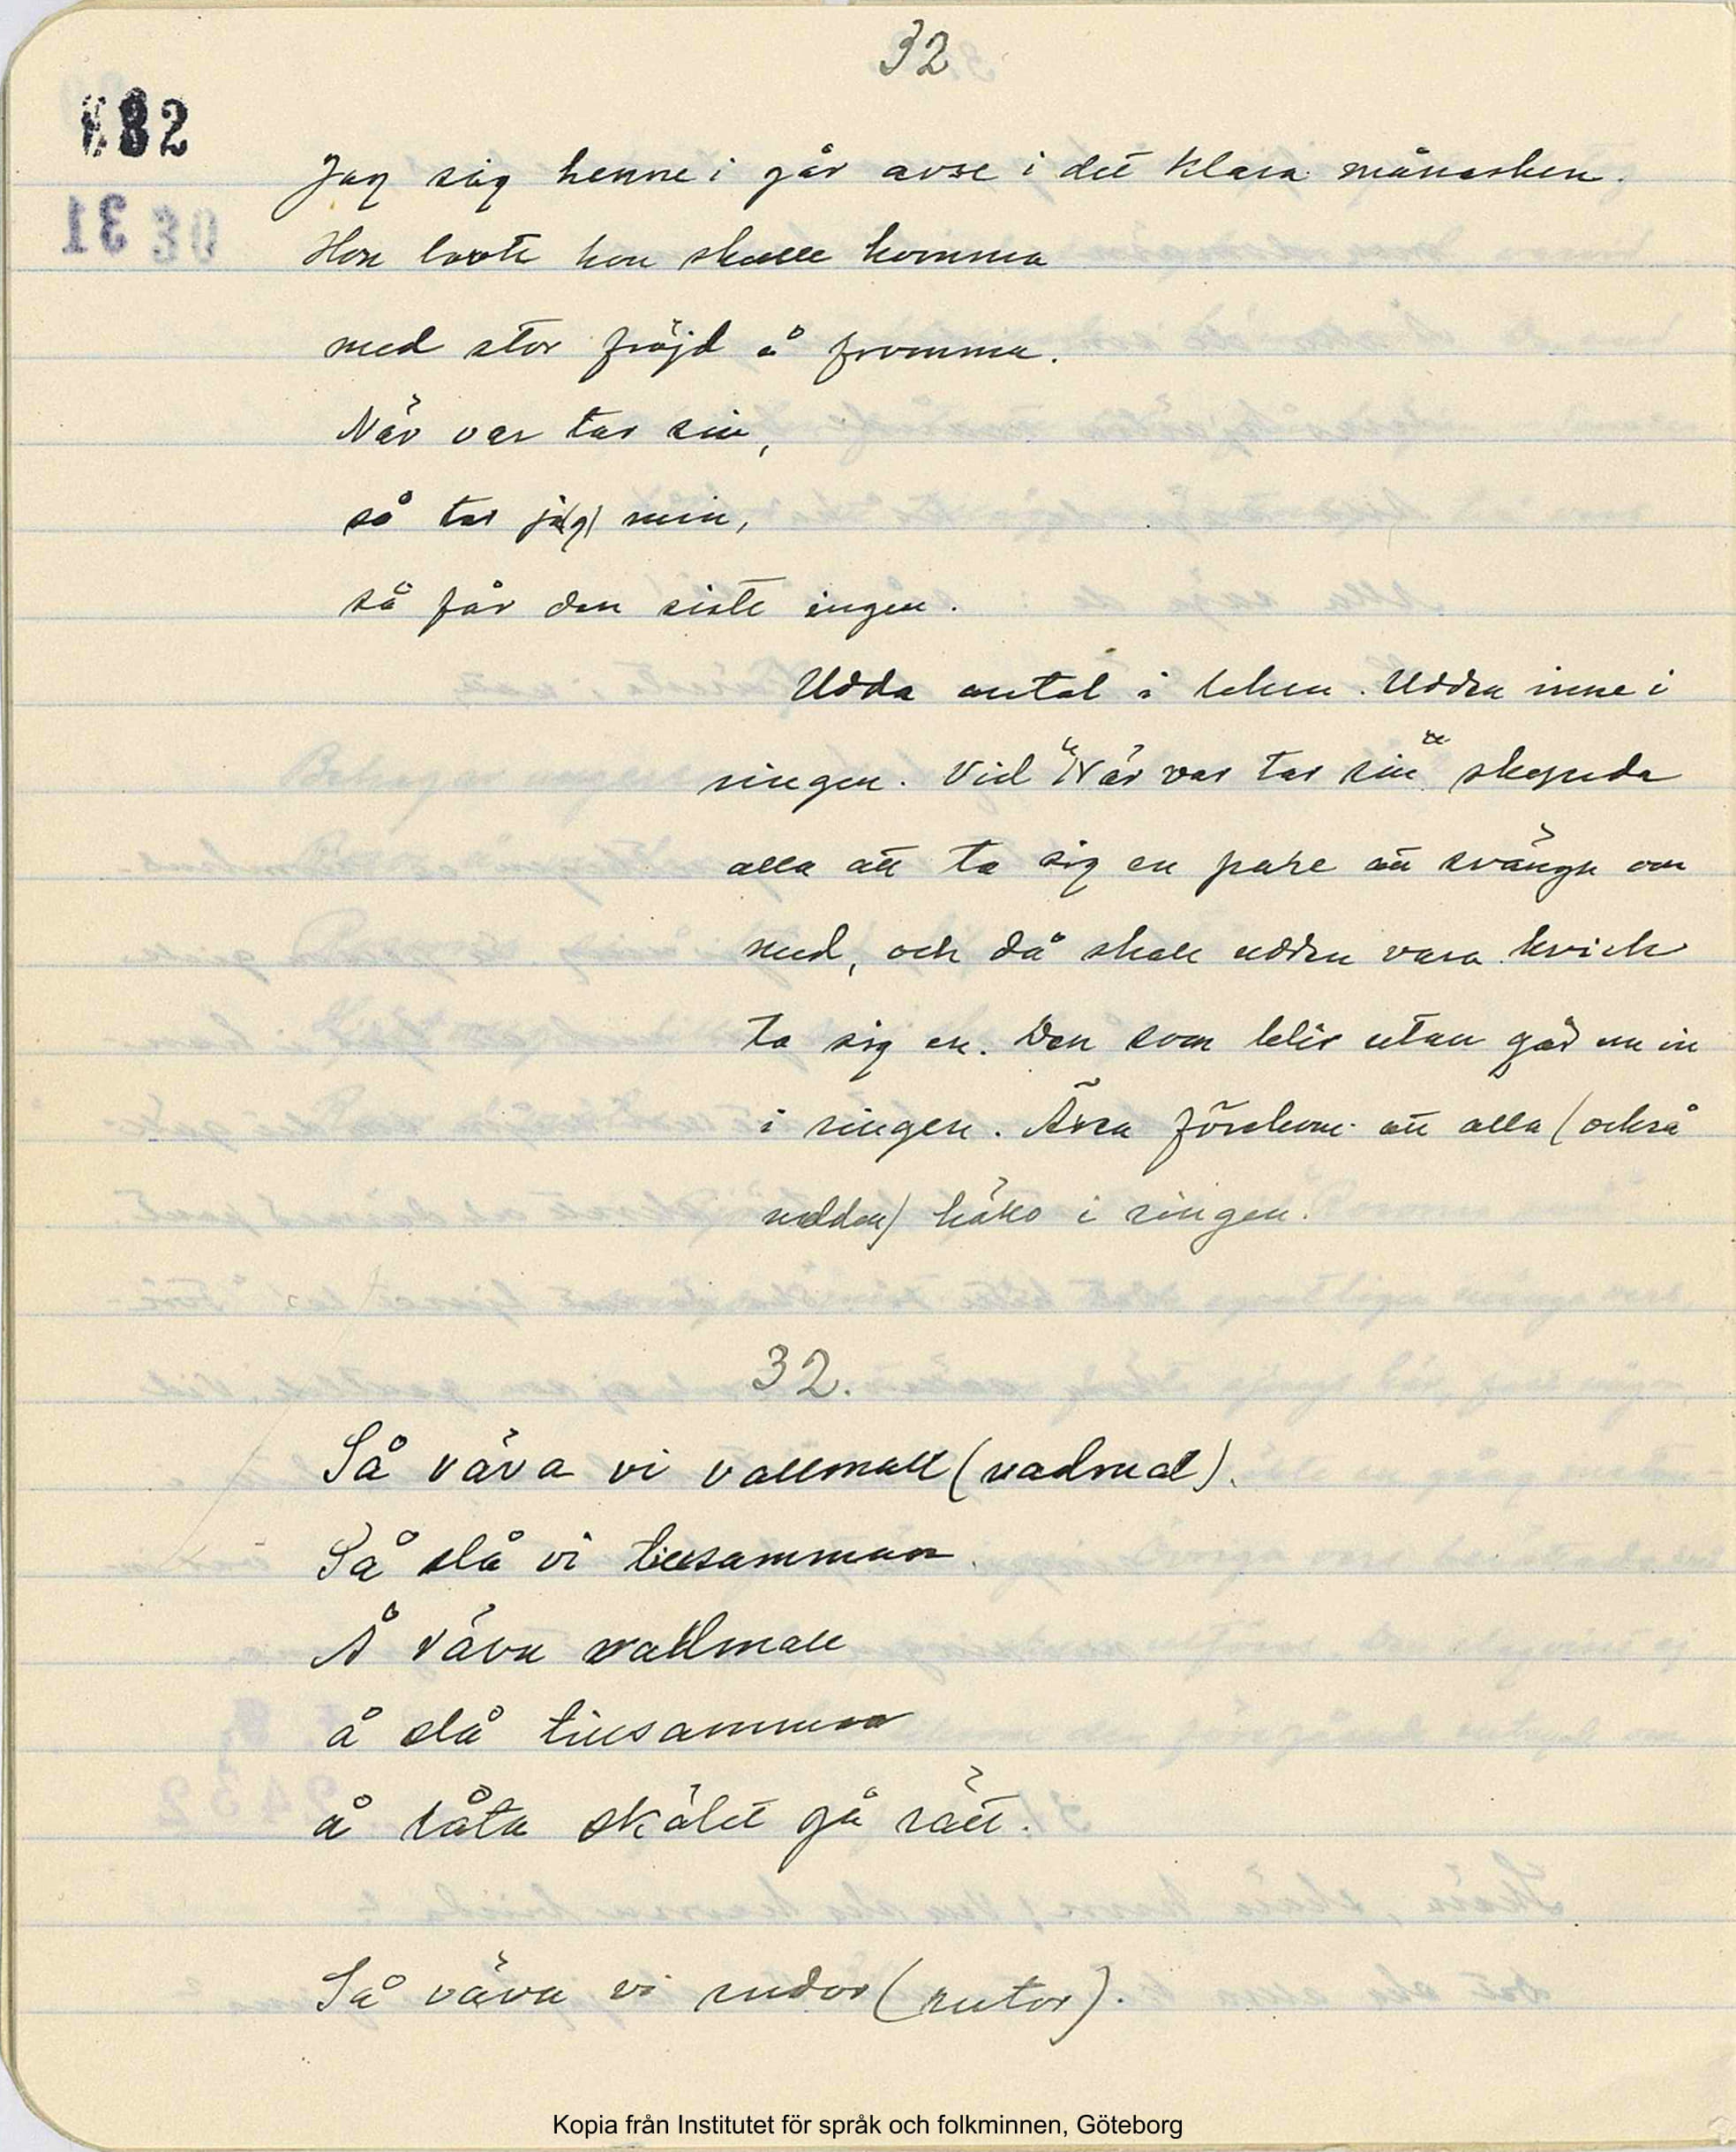 32
032
Jag såg henne i går avse i det klara månesken.
Hon lovte hon skulle komma
med stor fröjd å fromma.
När var tar sin,
så tar ja(g) min,
så får den siste ingen.
Udda antal i leken. Udden inne i
ringen. Vid "När var tar sin" skynda
alla att ta sig en pare att svänga om
med, och då skall udden vara kvick
ta sig en. Den som blir utan går nu in
i ringen. Även förekom att alla (också
udden) höllo i ringen.
32.
Så väva vi vallmall (vadmal).
Så slå vi tillsamman
Å väva vallmall
å slå tillsamman
å låta skälet gå rätt.
Så väva vi rudor (rutor).
Kopia från Institutet för språk och folkminnen, Göteborg